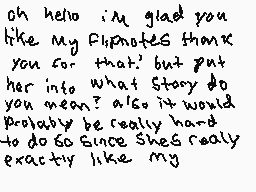 oh hello i'm glad you
like my flipnotes thank
you for that! but put
her into what story do
you mean? also it would
probably be really hard
to do so since shes really
exactly like my